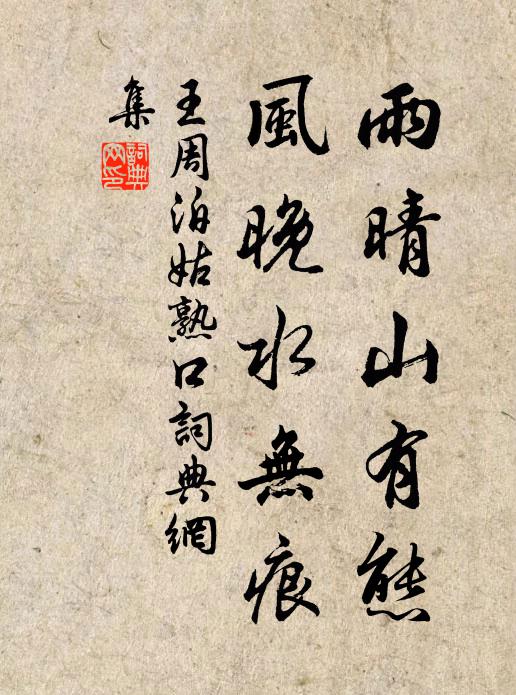 雨晴山有態
風晚水無痕
王周泊姑熟口詞典網
集
詞典
网印